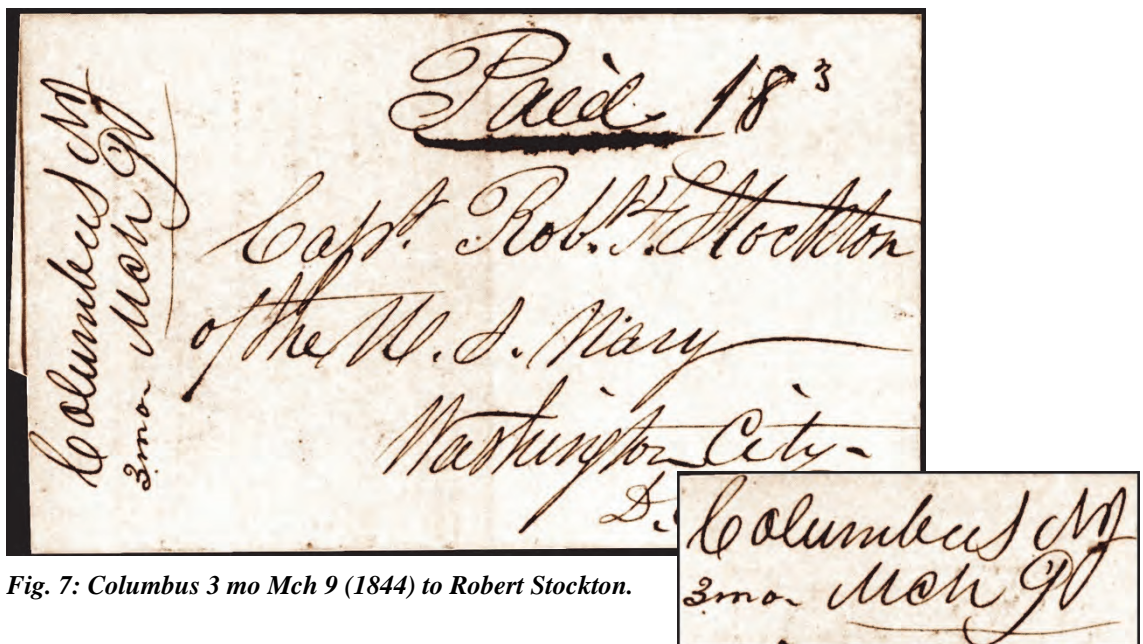 Columbus NJ
3 mo - Mch 9
Paid 18 3
Capt. Robt. F. Stockton
of the U. S. Navy
Washington City -
D.
Columbus NJ
3 mo - Mch 9
Fig. 7: Columbus 3 mo Mch 9 (1844) to Robert Stockton.